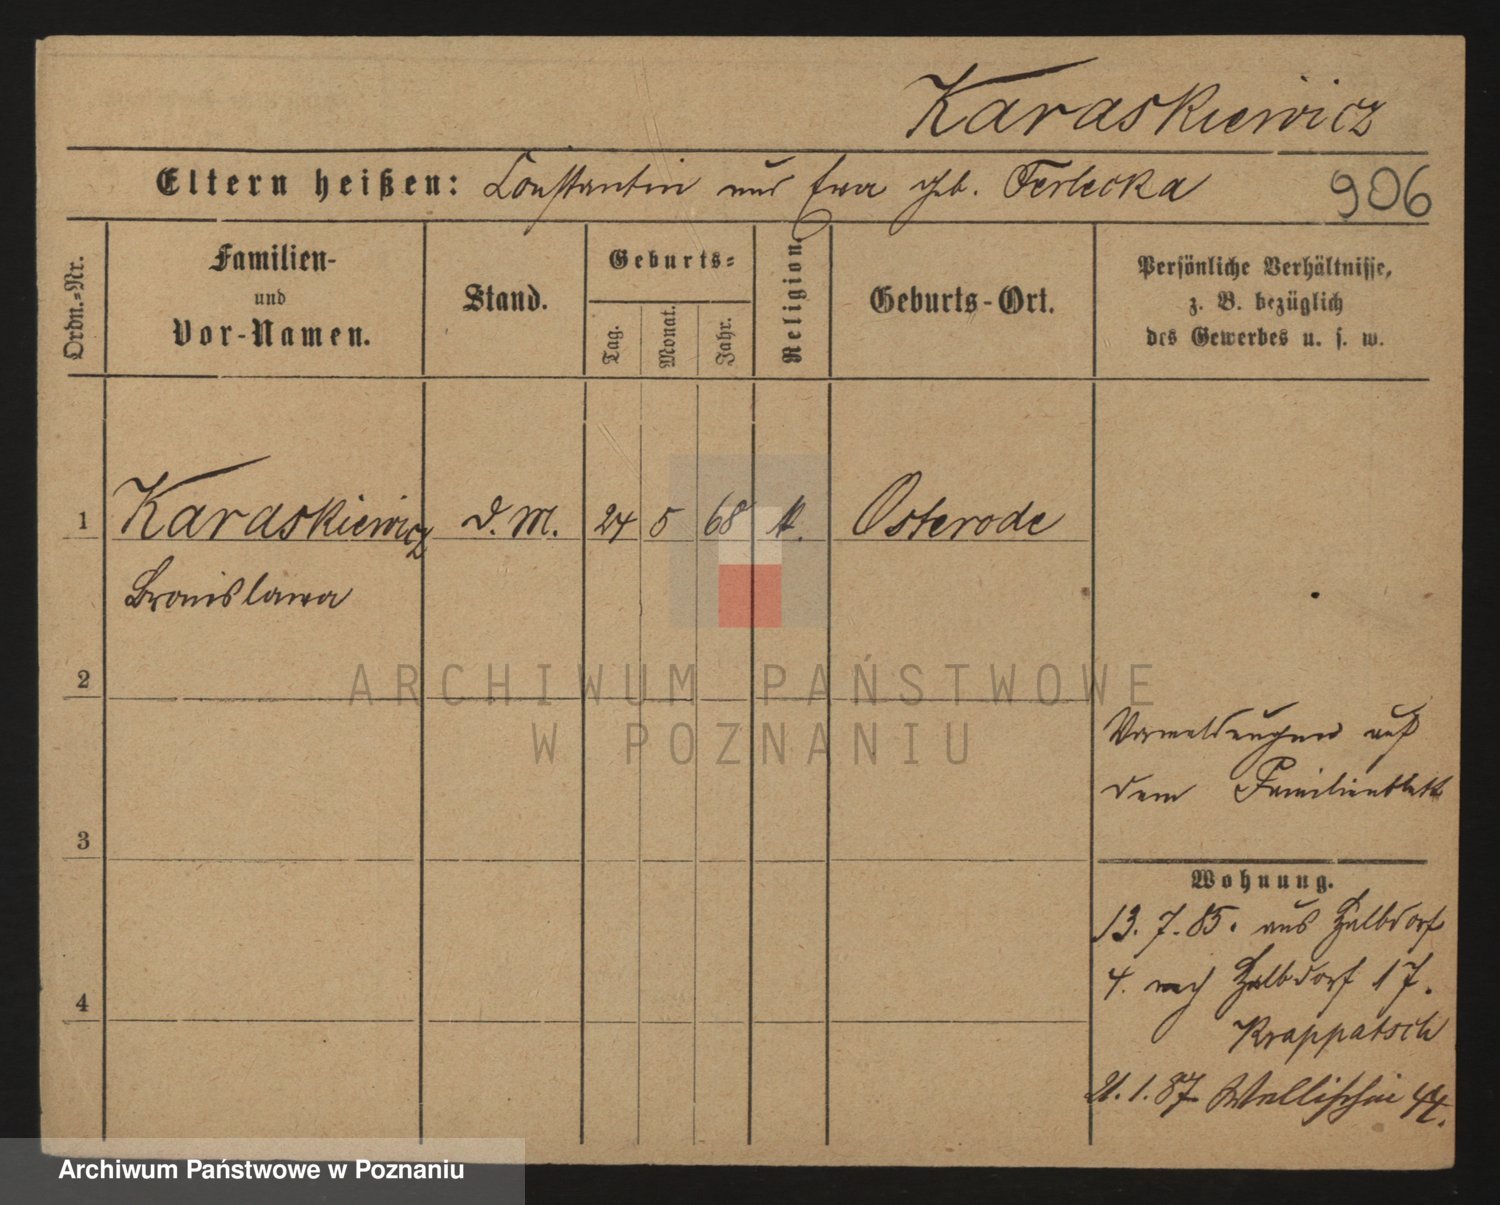 Karaskiewicz
Eltern heißen: Constantin und Eva geb. Terlecka 906
Ordn.-Nr.
Familien-
und
Vor-Namen.
Stand.
Geburts-
Tag.
Monat.
Jahr.
Religion.
Geburts-Ort.
Persönliche Verhältnisse,
z. B. bezüglich
des Gewerbes u. s. w.
1 Karaskiewicz d. M. 24 5 68 k. Osterode
Bronislawa
2
Vormeldungen auf
dem Familienblatt
3
Wohnung.
13. 7. 85. aus Halbdorf
4. nach Halbdorf 17.
Krappatsch
21. 1. 87 Wallischei 44.
4
ARCHIWUM PAŃSTWOWE
W POZNANIU
Archiwum Państwowe w Poznaniu